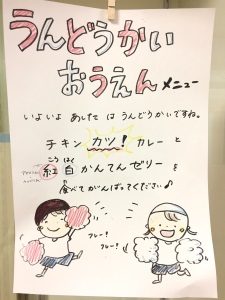 うんどうかい
おうえんメニュー
いよいよ あしたは うんどうかいですね。
チキン カツ！カレーと
こう はく
紅 白 かんてんゼリーを
食べてがんばってください♪
フレー！
フレー！